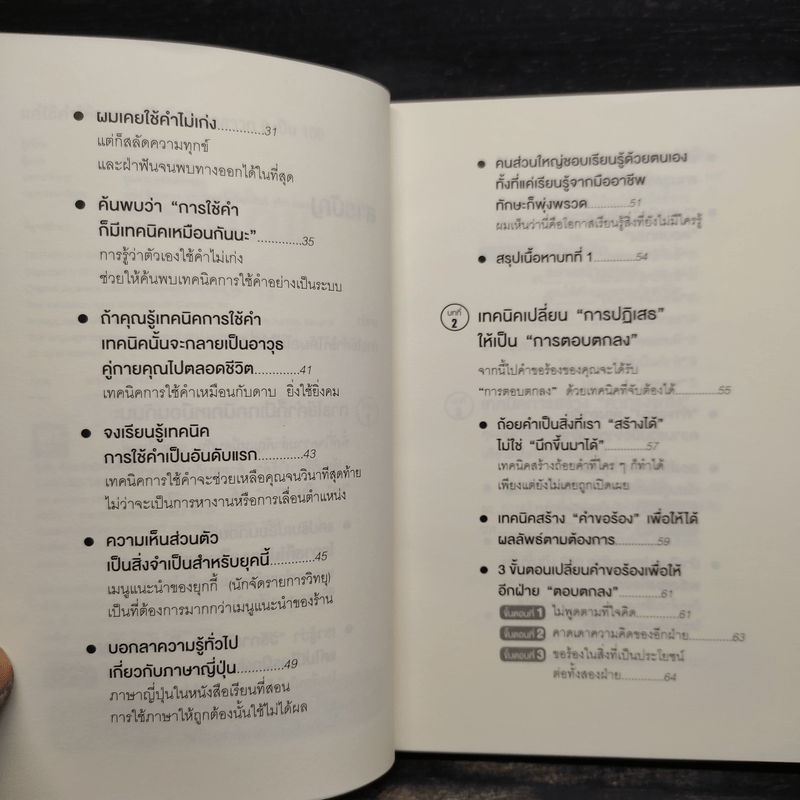 ● ผมเคยใช้คำไม่เก่ง.............31
แต่ก็สลัดความทุกข์
และฝ่าฟันจนพบทางออกได้ในที่สุด
● ค้นพบว่า “การใช้คำ
ก็มีเทคนิคเหมือนกันนะ”............35
การรู้ว่าตัวเองใช้คำไม่เก่ง
ช่วยให้ค้นพบเทคนิคการใช้คำอย่างเป็นระบบ
● ถ้าคุณรู้เทคนิคการใช้คำ
เทคนิคนั้นจะกลายเป็นอาวุธ
คู่กายคุณไปตลอดชีวิต............41
เทคนิคการใช้คำเหมือนกับดาบ ยิ่งใช้ยิ่งคม
● จงเรียนรู้เทคนิค
การใช้คำเป็นอันดับแรก............43
เทคนิคการใช้คำจะช่วยเหลือคุณจนวินาทีสุดท้าย
ไม่ว่าจะเป็นการหางานหรือการเลื่อนตำแหน่ง
● ความเห็นส่วนตัว
เป็นสิ่งจำเป็นสำหรับยุคนี้............45
เมนูแนะนำของยุกกี้ (นักจัดรายการวิทยุ)
เป็นที่ต้องการมากกว่าเมนูแนะนำของร้าน
● บอกลาความรู้ทั่วไป
เกี่ยวกับภาษาญี่ปุ่น............49
ภาษาญี่ปุ่นในหนังสือเรียนที่สอน
การใช้ภาษาให้ถูกต้องนั้นใช้ไม่ได้ผล
● คนส่วนใหญ่ชอบเรียนรู้ด้วยตนเอง
ทั้งที่แค่เรียนรู้จากมืออาชีพ
ทักษะก็พุ่งพรวด............51
ผมเห็นว่านี่คือโอกาสเรียนรู้สิ่งที่ยังไม่มีใครรู้
● สรุปเนื้อหาบทที่ 1............54
บทที่ 2 เทคนิคเปลี่ยน “การปฏิเสธ”
ให้เป็น “การตอบตกลง”
จากนี้ไปคำขอร้องของคุณจะได้รับ
“การตอบตกลง” ด้วยเทคนิคที่จับต้องได้............55
● ถ้อยคำเป็นสิ่งที่เรา “สร้างได้”
ไม่ใช่ “นึกขึ้นมาได้”............57
เทคนิคสร้างถ้อยคำที่ใคร ๆ ก็ทำได้
เพียงแต่ยังไม่เคยถูกเปิดเผย
● เทคนิคสร้าง “คำขอร้อง” เพื่อให้ได้
ผลลัพธ์ตามต้องการ............59
● 3 ขั้นตอนเปลี่ยนคำขอร้องเพื่อให้
อีกฝ่าย “ตอบตกลง”............61
ขั้นตอนที่ 1 ไม่พูดตามที่ใจคิด............61
ขั้นตอนที่ 2 คาดเดาความคิดของอีกฝ่าย............63
ขั้นตอนที่ 3 ขอร้องในสิ่งที่เป็นประโยชน์
ต่อทั้งสองฝ่าย............64